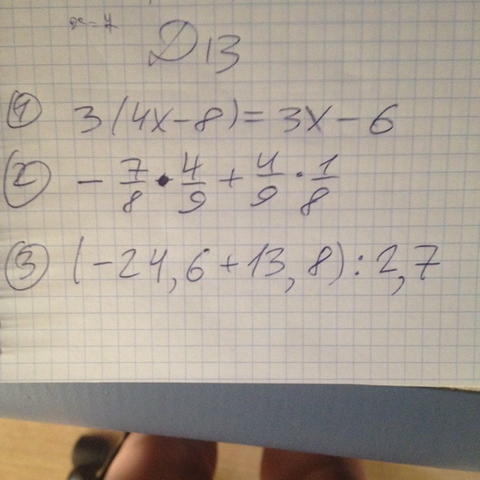 x=7
Д13
① 3(4x-8)=3x-6
② - 7/8 · 4/9 + 4/9 · 1/8
③ (-24,6+13,8):2,7